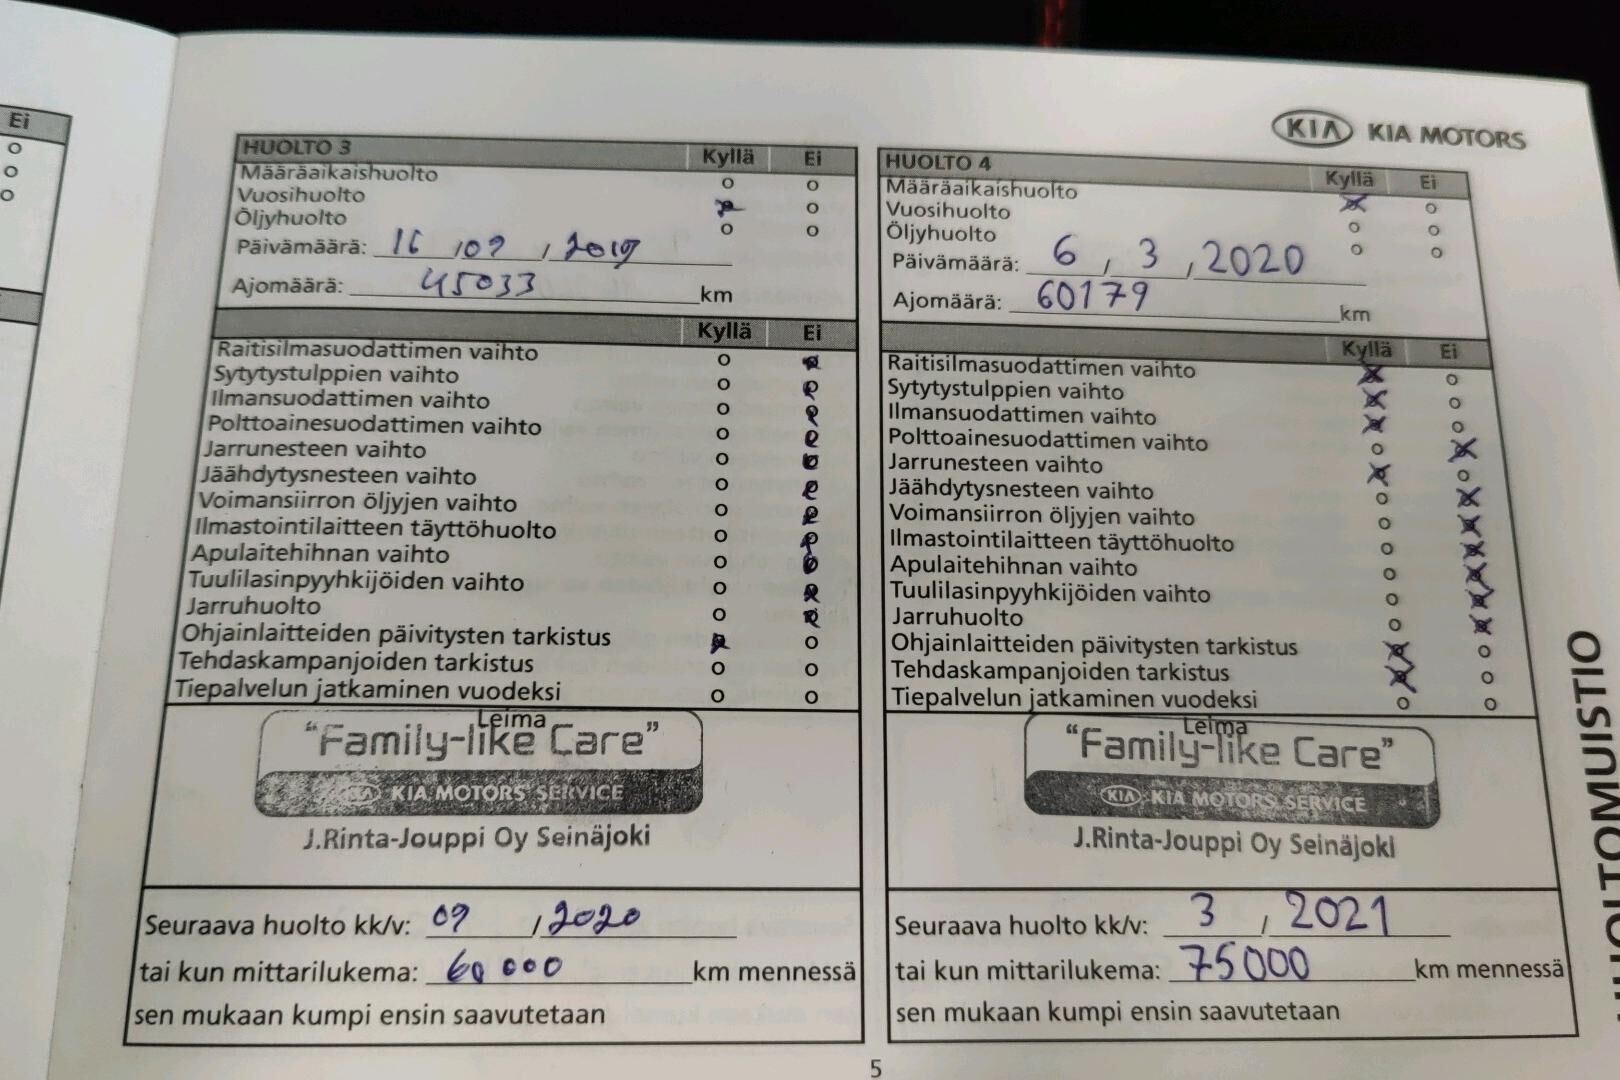 Ei
KIA KIA MOTORS
HUOLTO 3 Kyllä Ei
Määräaikaishuolto
Vuosihuolto
Öljyhuolto
Päivämäärä: 16 / 09 / 2019
Ajomäärä: 45033 km
Kyllä Ei
Raitisilmasuodattimen vaihto
Sytytystulppien vaihto
Ilmansuodattimen vaihto
Polttoainesuodattimen vaihto
Jarrunesteen vaihto
Jäähdytysnesteen vaihto
Voimansiirron öljyjen vaihto
Ilmastointilaitteen täyttöhuolto
Apulaitehihnan vaihto
Tuulilasinpyyhkijöiden vaihto
Jarruhuolto
Ohjainlaitteiden päivitysten tarkistus
Tehdaskampanjoiden tarkistus
Tiepalvelun jatkaminen vuodeksi
Leima
"Family-like Care"
KIA KIA MOTORS SERVICE
J.Rinta-Jouppi Oy Seinäjoki
Seuraava huolto kk/v: 09 / 2020
tai kun mittarilukema: 60 000 km mennessä
sen mukaan kumpi ensin saavutetaan
HUOLTO 4 Kyllä Ei
Määräaikaishuolto
Vuosihuolto
Öljyhuolto
Päivämäärä: 6 / 3 / 2020
Ajomäärä: 60179 km
Kyllä Ei
Raitisilmasuodattimen vaihto
Sytytystulppien vaihto
Ilmansuodattimen vaihto
Polttoainesuodattimen vaihto
Jarrunesteen vaihto
Jäähdytysnesteen vaihto
Voimansiirron öljyjen vaihto
Ilmastointilaitteen täyttöhuolto
Apulaitehihnan vaihto
Tuulilasinpyyhkijöiden vaihto
Jarruhuolto
Ohjainlaitteiden päivitysten tarkistus
Tehdaskampanjoiden tarkistus
Tiepalvelun jatkaminen vuodeksi
Leima
"Family-like Care"
KIA KIA MOTORS SERVICE
J.Rinta-Jouppi Oy Seinäjoki
Seuraava huolto kk/v: 3 / 2021
tai kun mittarilukema: 75000 km mennessä
sen mukaan kumpi ensin saavutetaan
HUOLTOMUISTIO
5